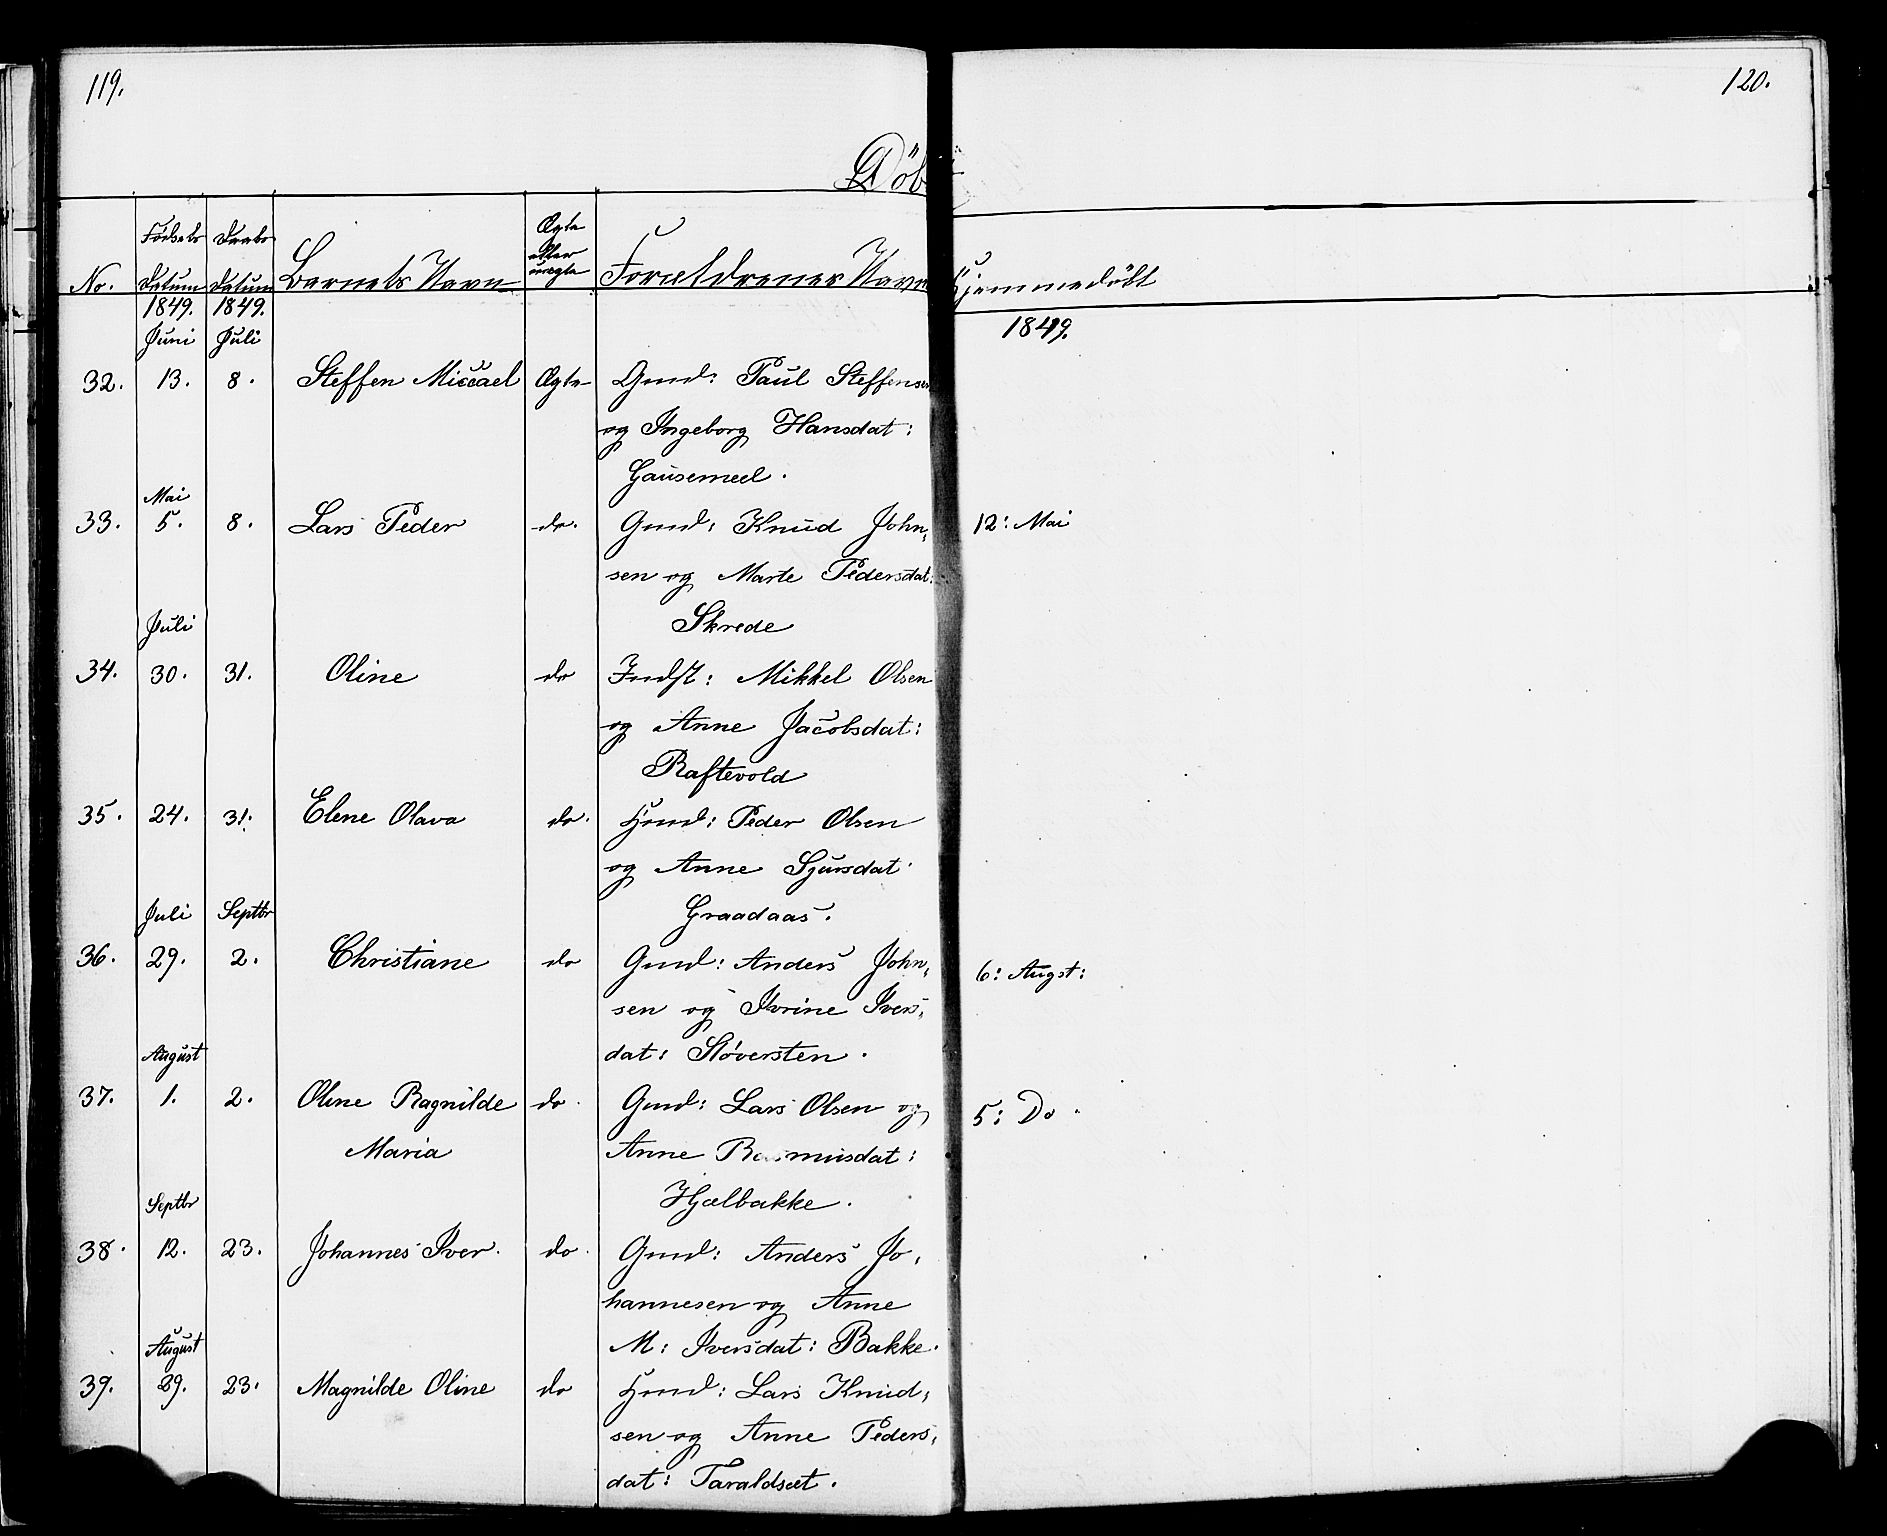 119.
120.
Döb
No.
Fødsels Datum
Daabs Datum
Barnets Navn
Ægte eller uægte
Forældrenes Navn
Hjemmedöbt
1849. 1849.
1849.
Juni Juli
32. 13. 8. Steffen Miccael Ægte Gmd: Paul Steffensen
og Ingeborg Hansdat:
Gausemeel.
Mai
33. 5. 8. Lars Peder do. Gmd: Knud John,
12: Mai
sen og Marte Pedersdat:
Juli
Skrede
34. 30. 31. Oline do Indst: Mikkel Olsen
og Anne Jacobsdat:
Raftevold
35. 24. 31. Elene Olava do. Hmd: Peder Olsen
og Anne Sjursdat
Juli Septbr
Graadaas.
36. 29. 2. Christiane do Gmd: Anders John,
6: Augst:
sen og Ivrine Ivers,
August
dat: Støversten.
37. 1. 2. Oline Ragnilde do. Gmd: Lars Olsen og
5: Do
Maria
Anne Rasmusdat:
Septbr
Hjælbakke.
38. 12. 23. Johannes Iver. do. Gmd: Anders Jo,
hannesen og Anne
August
M: Iversdat: Bakke.
39. 29. 23. Magnilde Oline do Hmd: Lars Knud,
sen og Anne Peders,
dat: Taraldsæt.